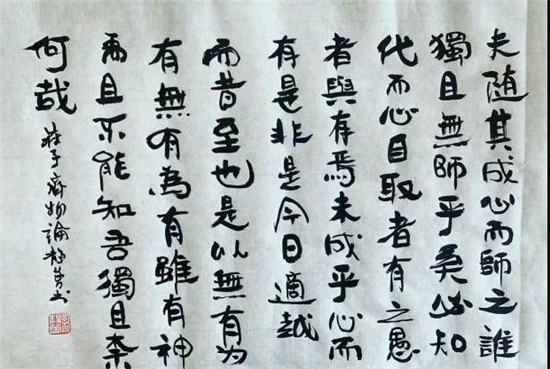 夫随其成心而師之誰
獨且無師乎奚必知
代而心自取者有之愚
者與有焉未成乎心而
有是非是今日適越
而昔至也是以無有为
有無有為有雖有神
禹且不能知吾獨且柰
何哉
莊子齊物論